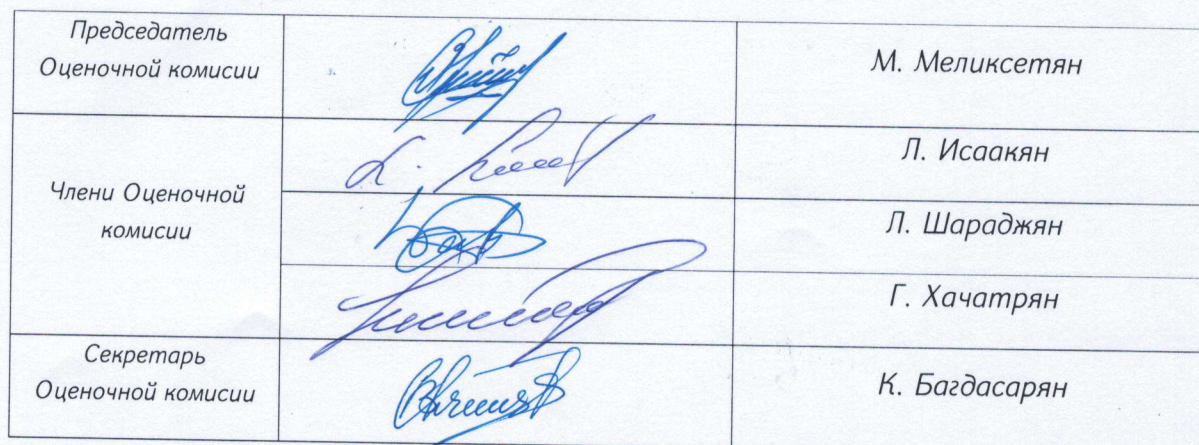 Председатель
Оценочной комисии
М. Меликсетян
Члени Оценочной
комисии
Л. Исаакян
Л. Шараджян
Г. Хачатрян
Секретарь
Оценочной комисии
К. Багдасарян